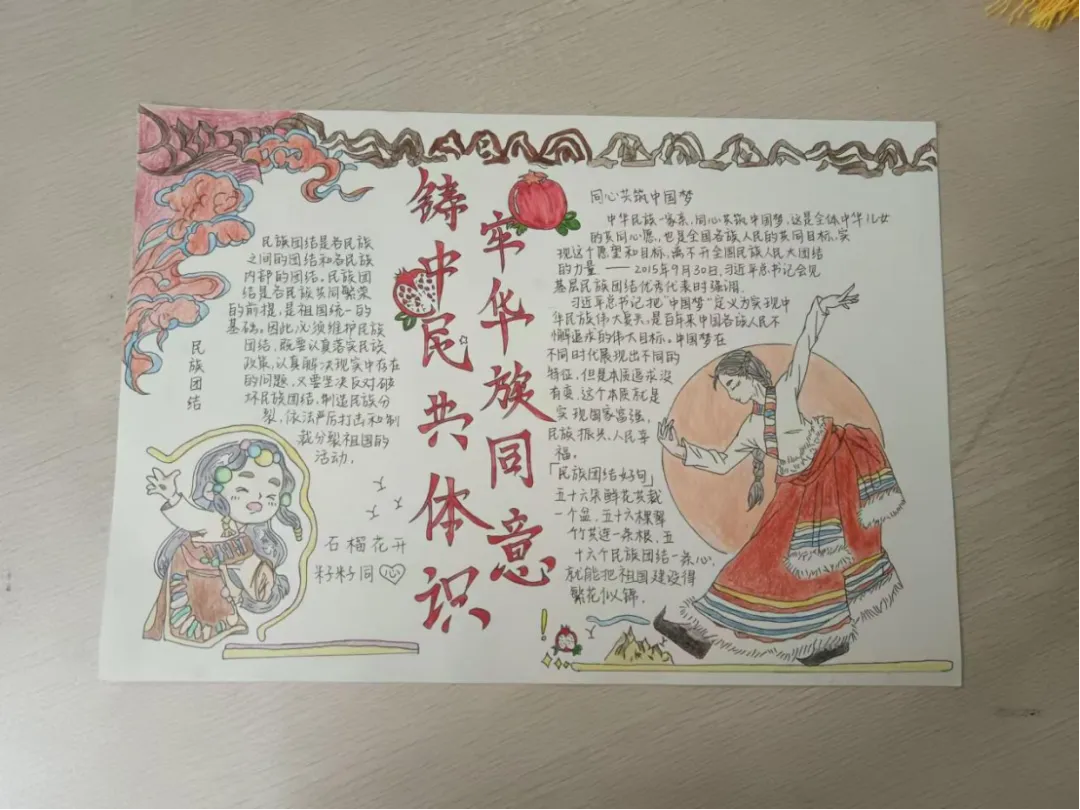 铸牢中华民族共同体意识
民族团结
民族团结是各民族
之间的团结和各民族
内部的团结。民族团
结是各民族共同繁荣
的前提，是祖国统一的
基础。因此必须维护民族
团结，既要认真落实民族
政策，认真解决现实中存在
的问题，又要坚决反对破
坏民族团结，制造民族分
裂，依法严厉打击和制
裁分裂祖国的
活动。
石榴花开
籽籽同心
同心共筑中国梦
中华民族一家亲，同心共筑中国梦，这是全体中华儿女
的共同心愿，也是全国各族人民的共同目标。实
现这个愿望和目标，离不开全国民族人民大团结
的力量——2015年9月30日，习近平总书记会见
基层民族团结优秀代表时强调.
习近平总书记把“中国梦”定义为实现中
华民族伟大复兴，是百年来中国各族人民不
懈追求的伟大目标。中国梦在
不同时代展现出不同的
特征，但是本质追求没
有变，这个本质就是
实现国家富强，
民族振兴、人民幸
福。
「民族团结好句」
五十六朵鲜花共栽
一个盆，五十六棵翠
竹共连一条根，五
十六个民族团结一条心，
就能把祖国建设得
繁花似锦.